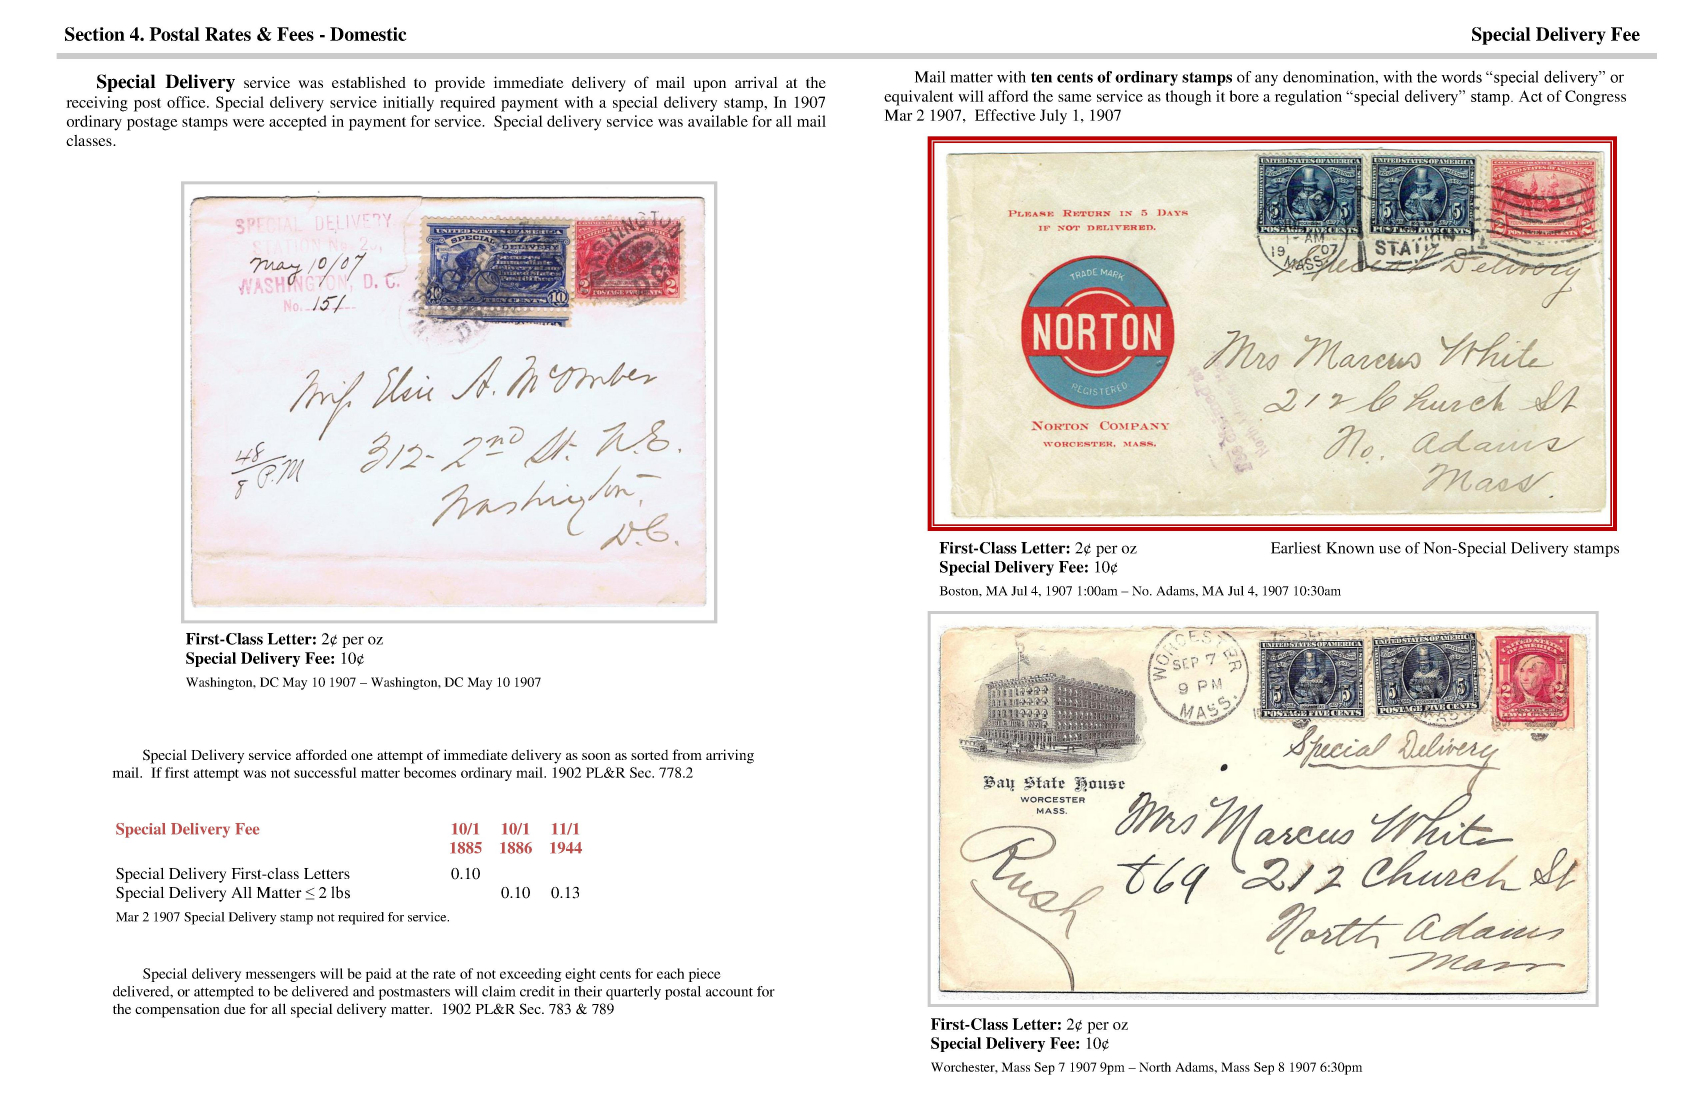 Section 4. Postal Rates & Fees - Domestic
Special Delivery Fee
Special Delivery service was established to provide immediate delivery of mail upon arrival at the
receiving post office. Special delivery service initially required payment with a special delivery stamp, In 1907
ordinary postage stamps were accepted in payment for service. Special delivery service was available for all mail
classes.
SPECIAL DELIVERY
STATION No. 2
May 10/07
WASHINGTON, D. C.
No. 151
UNITED STATES OF AMERICA
SPECIAL DELIVERY
10 TEN CENTS 10
2
Miss Elsie A. McOmber
312- 2nd St. N.E.
Washington,
D.C.
48
8 P.M
First-Class Letter: 2¢ per oz
Special Delivery Fee: 10¢
Washington, DC May 10 1907 – Washington, DC May 10 1907
Special Delivery service afforded one attempt of immediate delivery as soon as sorted from arriving
mail. If first attempt was not successful matter becomes ordinary mail. 1902 PL&R Sec. 778.2
Special Delivery Fee 10/1 10/1 11/1
1885 1886 1944
Special Delivery First-class Letters 0.10
Special Delivery All Matter ≤ 2 lbs 0.10 0.13
Mar 2 1907 Special Delivery stamp not required for service.
Special delivery messengers will be paid at the rate of not exceeding eight cents for each piece
delivered, or attempted to be delivered and postmasters will claim credit in their quarterly postal account for
the compensation due for all special delivery matter. 1902 PL&R Sec. 783 & 789
Mail matter with ten cents of ordinary stamps of any denomination, with the words “special delivery” or
equivalent will afford the same service as though it bore a regulation “special delivery” stamp. Act of Congress
Mar 2 1907, Effective July 1, 1907
UNITED STATES OF AMERICA UNITED STATES OF AMERICA
5 5 5 5
POSTAGE FIVE CENTS
1 - AM
19 07
MASS.
STATION
Special Delivery
PLEASE RETURN IN 5 DAYS
IF NOT DELIVERED.
TRADE MARK
NORTON
REGISTERED
NORTON COMPANY
WORCESTER, MASS.
Mrs Marcus White
212 Church St
No. Adams
Mass.
First-Class Letter: 2¢ per oz
Earliest Known use of Non-Special Delivery stamps
Special Delivery Fee: 10¢
Boston, MA Jul 4, 1907 1:00am – No. Adams, MA Jul 4, 1907 10:30am
WORCESTER
SEP 7
9 PM
MASS.
UNITED STATES OF AMERICA UNITED STATES OF AMERICA
5 5 5 5 2 2
POSTAGE FIVE CENTS POSTAGE FIVE CENTS
Special Delivery
Bay State House
WORCESTER
MASS.
Rush
Mrs Marcus White
869 212 Church St
North Adams
Mass
First-Class Letter: 2¢ per oz
Special Delivery Fee: 10¢
Worchester, Mass Sep 7 1907 9pm – North Adams, Mass Sep 8 1907 6:30pm